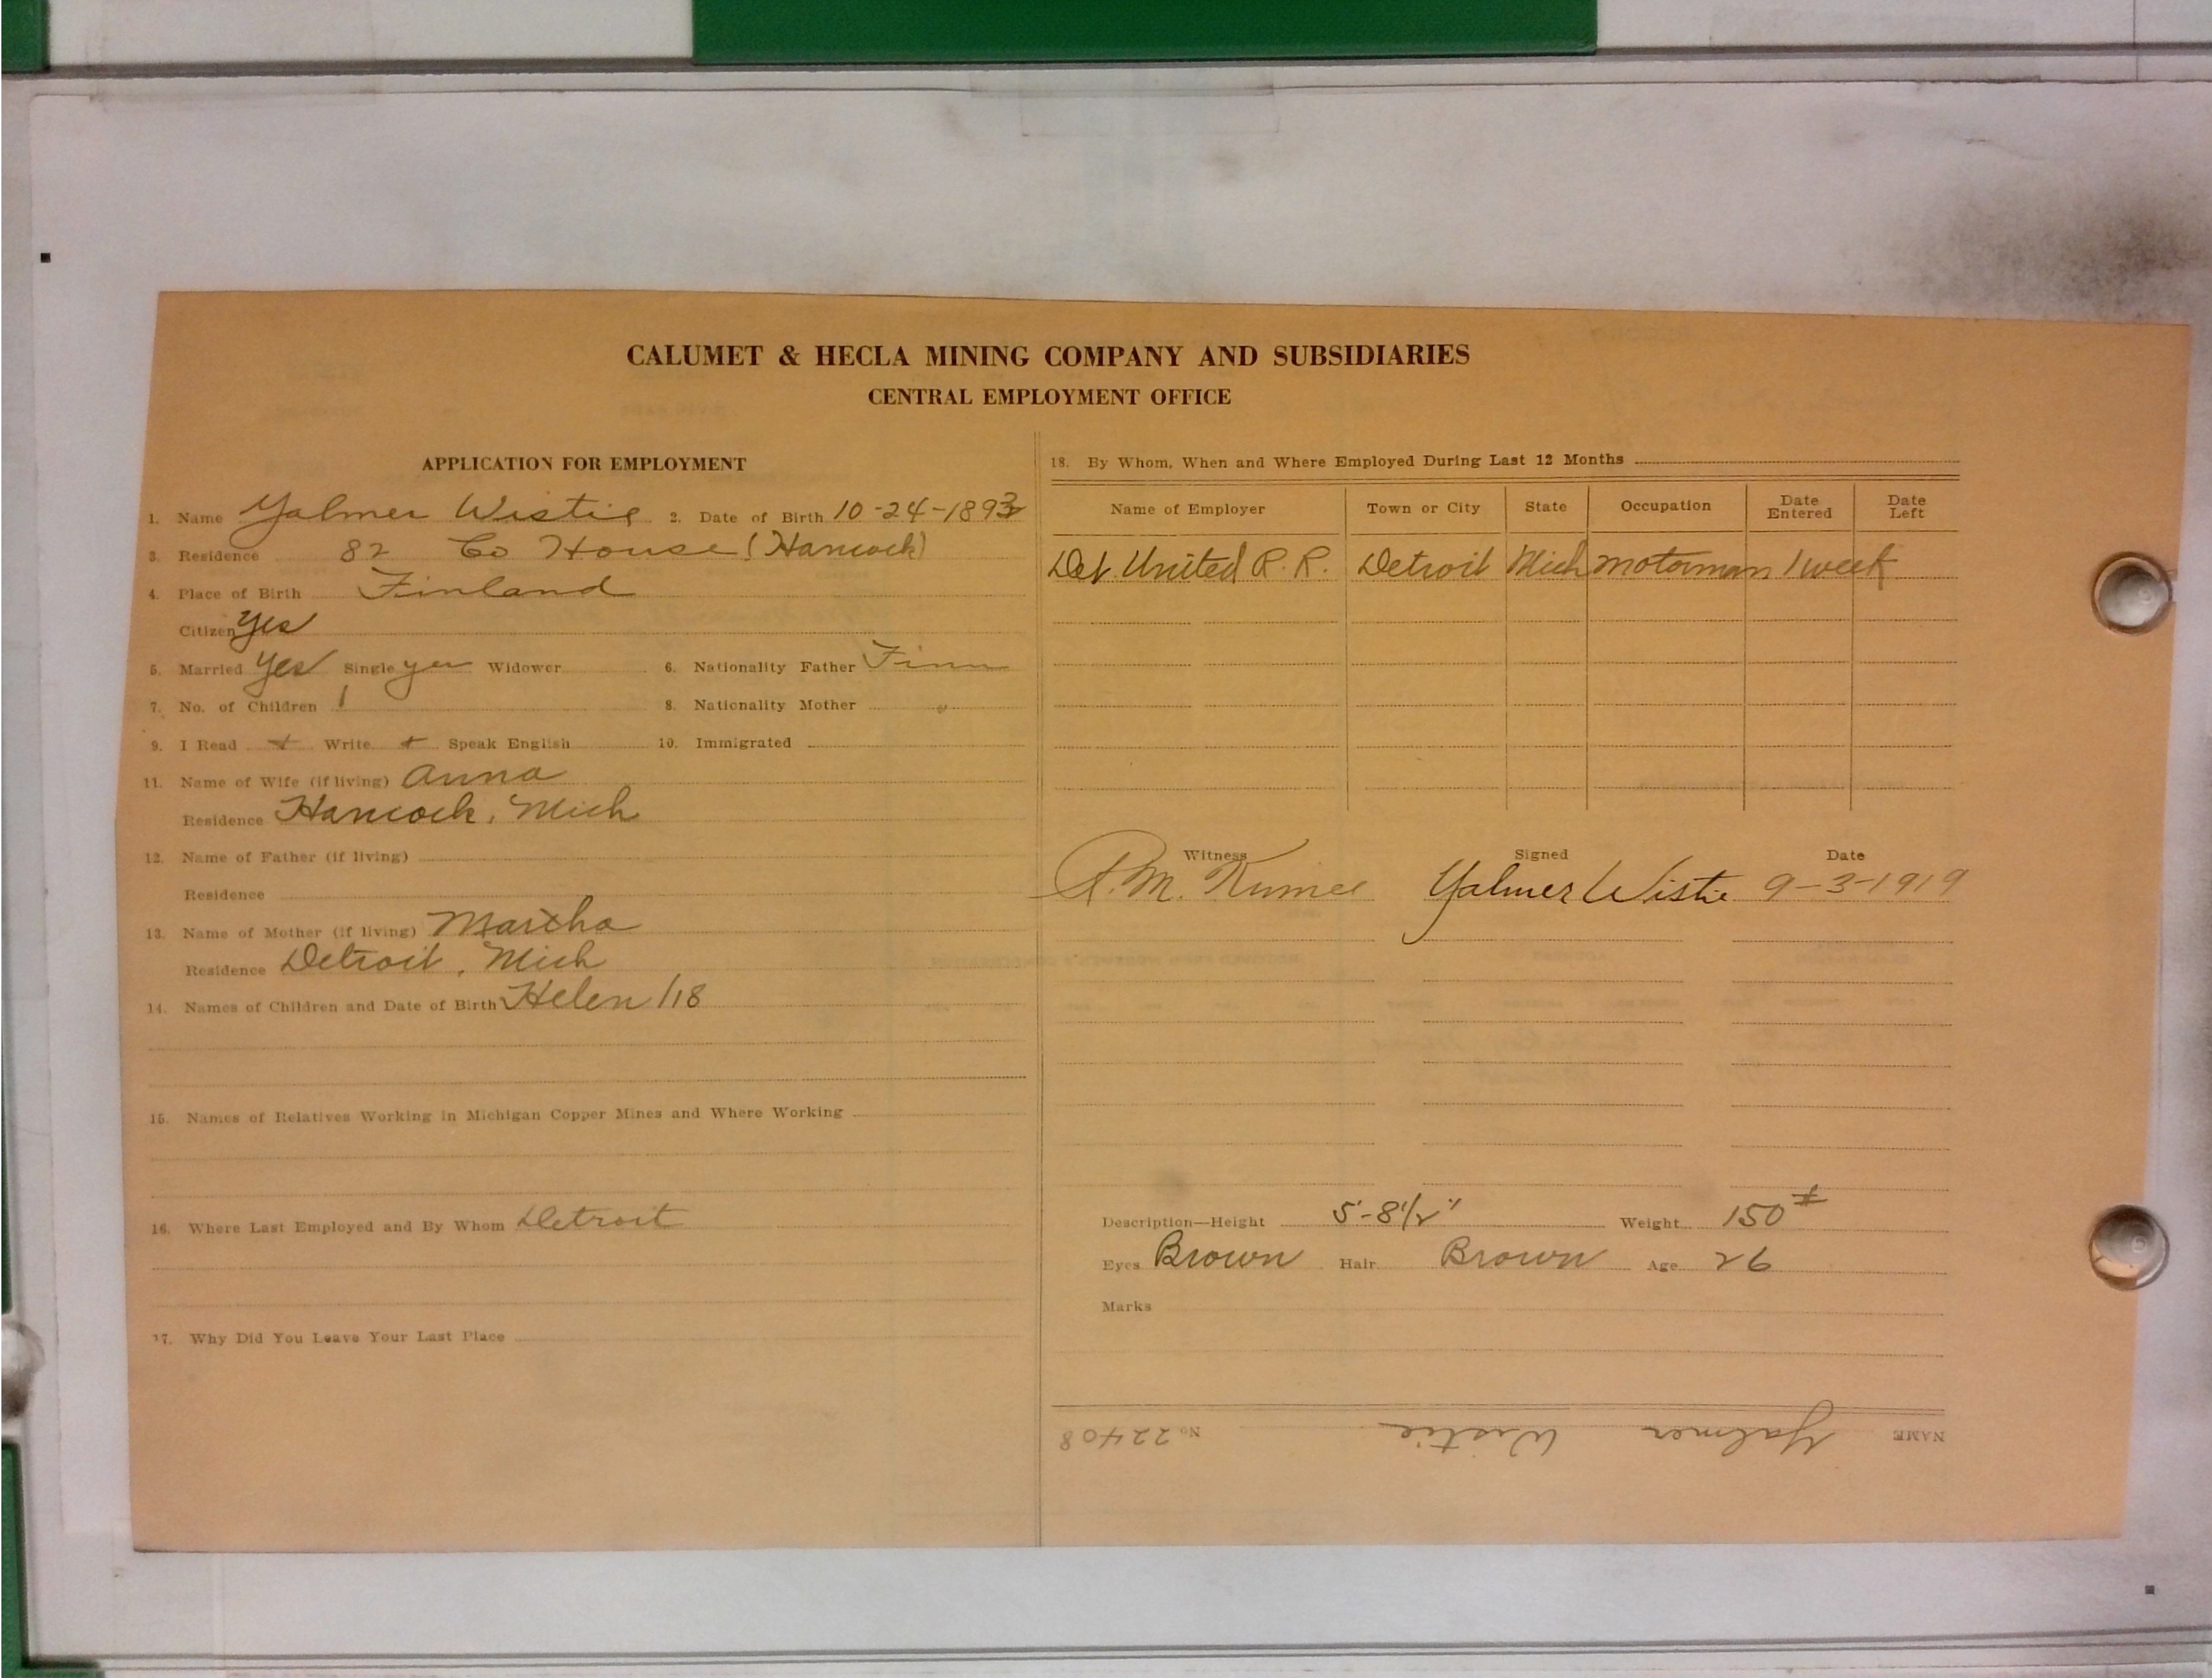 CALUMET & HECLA MINING COMPANY AND SUBSIDIARIES
CENTRAL EMPLOYMENT OFFICE
APPLICATION FOR EMPLOYMENT
1. Name Yalmer Wistie 2. Date of Birth 10-24-1893
3. Residence 82 Co House (Hancock)
4. Place of Birth Finland
Citizen Yes
5. Married Yes Single yes Widower 6. Nationality Father Finn
7. No. of Children 1 8. Nationality Mother "
9. I Read + Write + Speak English 10. Immigrated
11. Name of Wife (if living) Anna
Residence Hancock, Mich
12. Name of Father (if living)
Residence
13. Name of Mother (if living) Martha
Residence Detroit, Mich
14. Names of Children and Date of Birth Helen /18
15. Names of Relatives Working in Michigan Copper Mines and Where Working
16. Where Last Employed and By Whom Detroit
17. Why Did You Leave Your Last Place
18. By Whom, When and Where Employed During Last 12 Months
Name of Employer Town or City State Occupation Date Entered Date Left
Det. United R. R. Detroit Mich motorman 1 week
Witness Signed Date
Yalmer Wistie 9-3-1919
Description—Height 5'-8 1/2" Weight 150#
Eyes Brown Hair Brown Age 26
Marks
NAME Yalmer Wistie No 22408